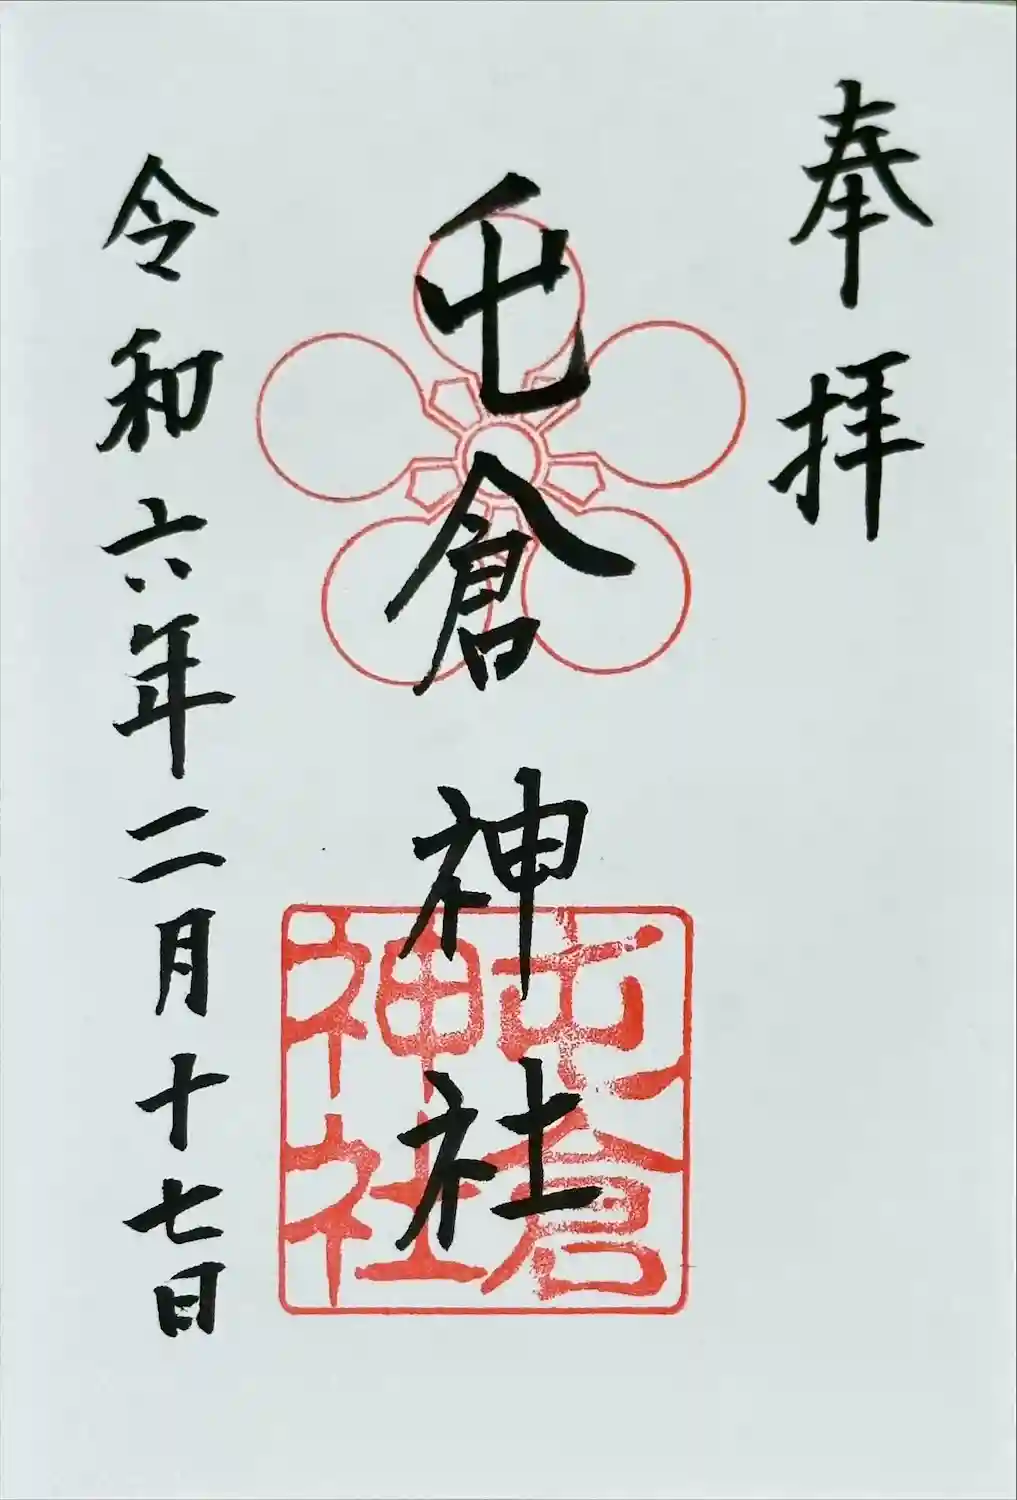 奉拝
屯倉神社
屯倉
神社
令和六年二月十七日